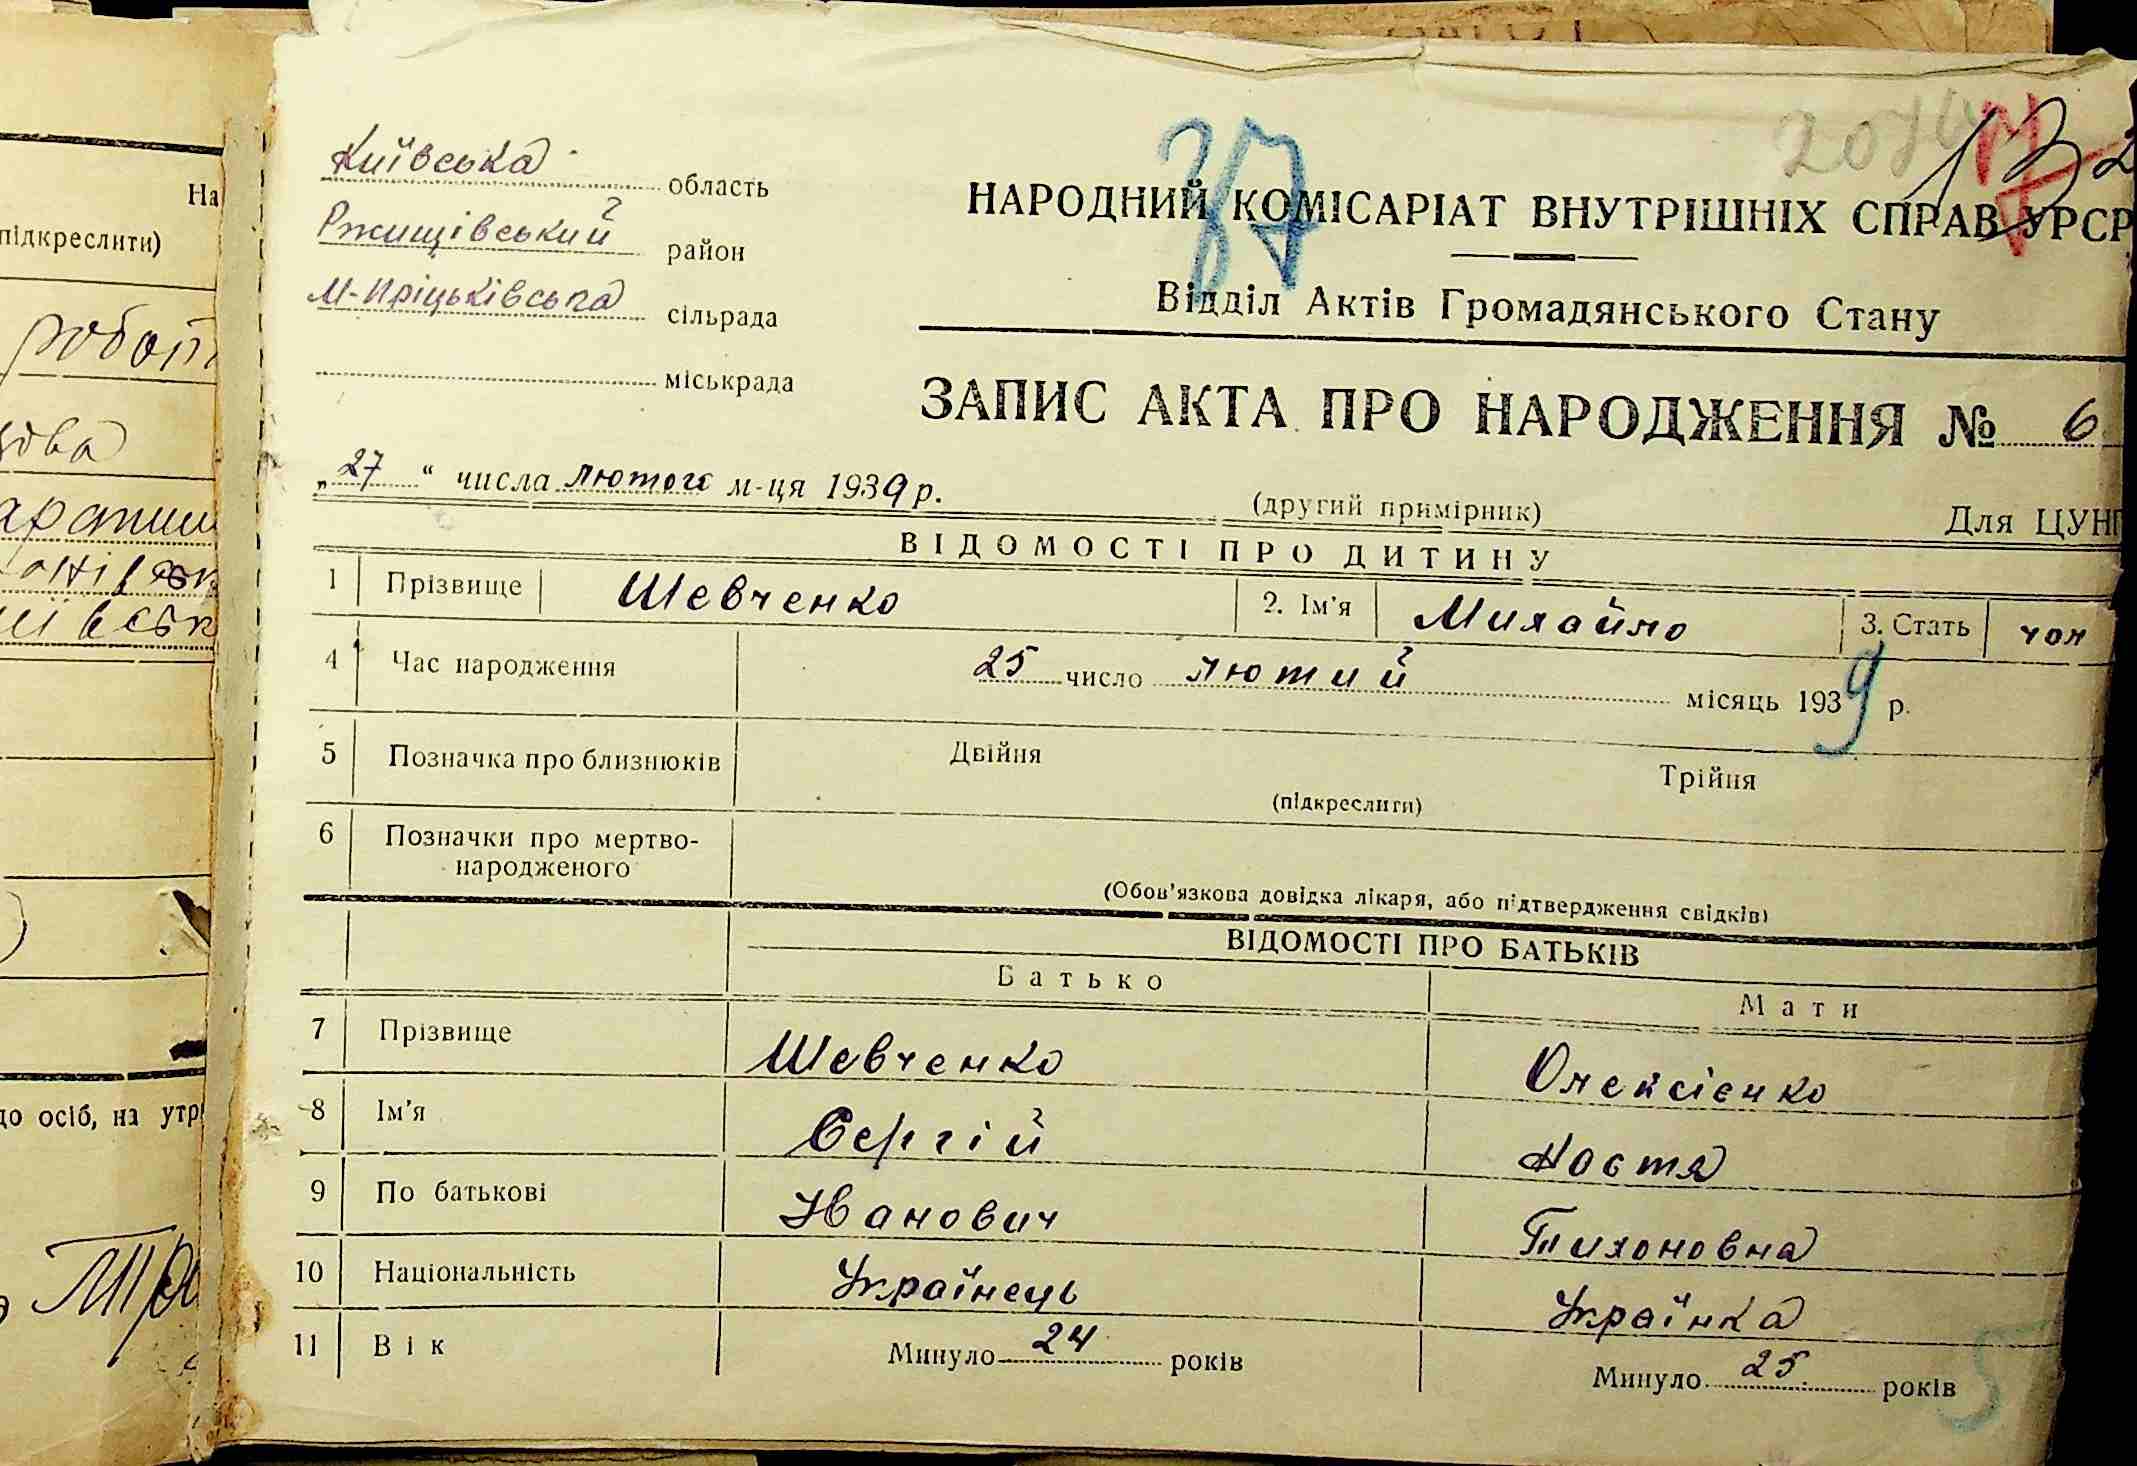 Київська область
Ржищівський район
М-Пріцьківська сільрада
міськрада
37
132
НАРОДНИЙ КОМІСАРІАТ ВНУТРІШНІХ СПРАВ УРСР
Відділ Актів Громадянського Стану
ЗАПИС АКТА ПРО НАРОДЖЕННЯ № 6
„27“ числа лютого м-ця 1939 р.
(другий примірник)
Для ЦУНГ
ВІДОМОСТІ ПРО ДИТИНУ
1 Прізвище Шевченко 2. Ім'я Михайло 3. Стать чол
4 Час народження 25 число лютий місяць 1939 р.
5 Позначка про близнюків Двійня Трійня
(підкреслити)
6 Позначки про мертво-
народженого
(Обов'язкова довідка лікаря, або підтвердження свідків)
ВІДОМОСТІ ПРО БАТЬКІВ
Батько Мати
7 Прізвище Шевченко Олексієнко
8 Ім'я Сергій Настя
9 По батькові Іванович Тихоновна
10 Національність Українець Українка
11 Вік Минуло 24 років Минуло 25 років
5
На
підкреслити)
робот
до осіб, на утр